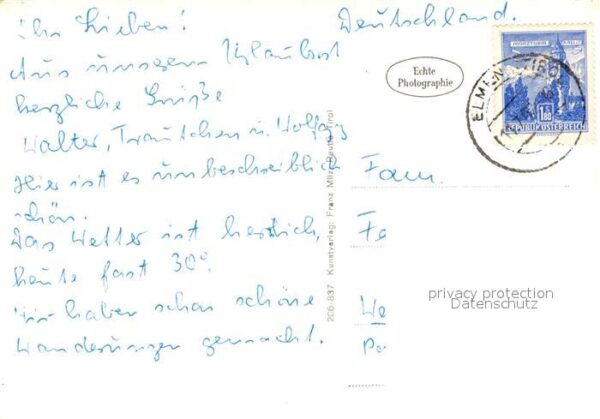 Ihr Lieben!
Aus unserm Urlaubsort
herzliche Grüße
Walter, Trautchen u. Wolfgang
Hier ist es unbeschreiblich
schön.
Das Wetter ist herrlich,
heute fast 30°.
Wir haben schon schöne
Wanderungen gemacht.
206-837 Kunstverlag: Franz Milz, Reutte, Tirol
Deutschland.
Echte
Photographie
ELMEN TIROL
1.80
REPUBLIK ÖSTERREICH
Fam.
Fe
We
Po
privacy protection
Datenschutz